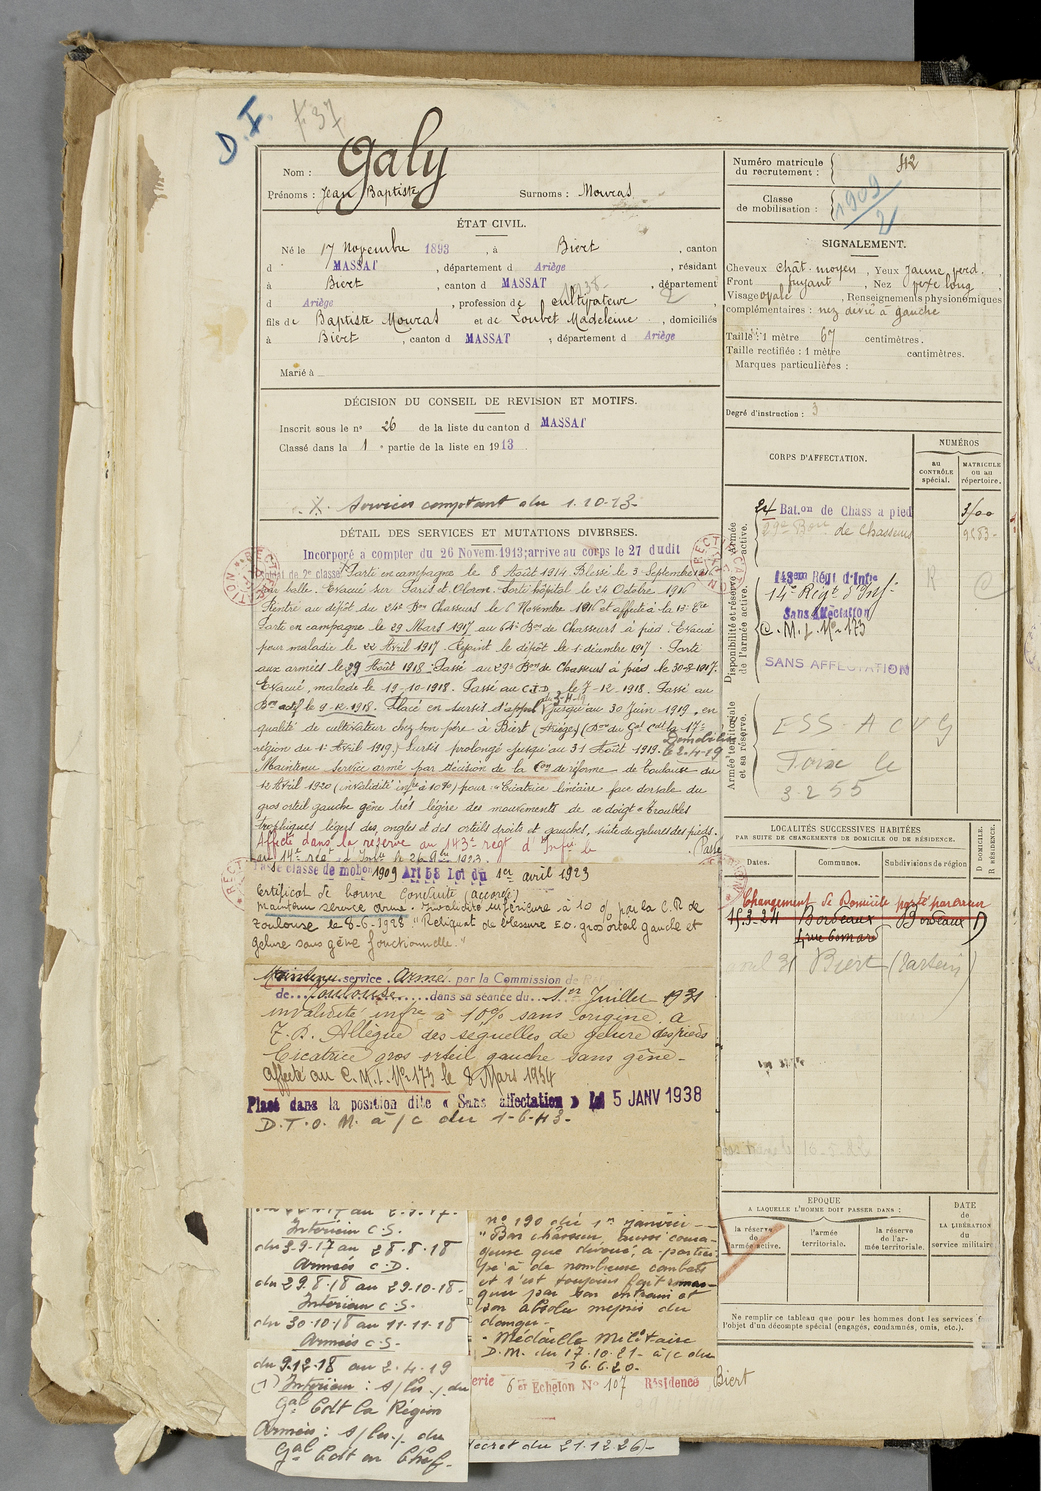 D.I.
F.37
Nom : Galy
Prénoms : Jean Baptiste Surnoms : Mouras
ÉTAT CIVIL.
Né le 17 Novembre 1893, à Biert, canton
d MASSAT, département d Ariège, résidant
à Biert, canton d MASSAT, département
d Ariège, profession de cultivateur
fils de Baptiste Mouras et de Loubet Madeleine, domiciliés
à Biert, canton d MASSAT, département d Ariège
Marié à
DÉCISION DU CONSEIL DE REVISION ET MOTIFS.
Inscrit sous le n° 26 de la liste du canton d MASSAT
Classé dans la 1e partie de la liste en 1913
X. Services comptant du 1.10-13-
DÉTAIL DES SERVICES ET MUTATIONS DIVERSES.
Incorporé a compter du 26 Novem. 1913; arrive au corps le 27 dudit
soldat de 2e classe. Parti en campagne le 8 Août 1914. Blessé le 3 Septembre
par balle. Evacué sur Paris et Oloron. Sorti hôpital le 24 Octobre 1916
Rentré au dépôt du 24e Bon Chasseurs le 6 Novembre 1916 et affecté à la 13e Cie
Parti en campagne le 29 Mars 1917 au 64e Bon de Chasseurs à pied. Evacué
pour maladie le 22 Avril 1917. Rejoint le dépôt le 1 décembre 1917. Parti
aux armées le 29 Août 1918. Passé au 29e Bon de Chasseurs à pied le 30-8-1917.
Evacué, malade le 19-10-1918. Passé au C.I.D. le 7-12-1918. Passé au
Bon actif le 9-12-1918. Placé en sursis d'appel du 3-4-19 jusqu'au 30 Juin 1919. en
qualité de cultivateur chez son père à Biert (Ariège) (Don du Gal Cdt la 17e
région du 1 Avril 1919.) Sursis prolongé jusqu'au 31 Août 1919. Démobilisé le 2-4-19
Maintenu service armé par décision de la Con de réforme de Toulouse du
12 Avril 1920 (invalidité infre à 10%) pour : Cicatrice linéaire face dorsale du
gros orteil gauche gêne très légère des mouvements de ce doigt. Troubles
trophiques légers des ongles et des orteils droits et gauches, suite de gelures des pieds.
Affecté dans la réserve au 143e regt d'Infie le
Passé
au 14e régt d'Infie le
classe de mobon 1909 Art 58 Loi du 1er avril 1923
Certificat de bonne Conduite (accordé)
Maintenu service armé. Invalidité inférieure à 10 % par la C.R de
Toulouse le 8-6-1928 "Reliquat de blessure E.O. gros orteil gauche et
gelure sans gêne fonctionnelle."
Maintenu service Armé par la Commission de
de Toulouse dans sa séance du 1er Juillet 1931
invalidité infre à 10% sans origine. A
F.B. Allègue des séquelles de gelure des pieds
Cicatrice gros orteil gauche sans gêne-
affecté au C.M.I. N° 173 le 8 Mars 1934
Placé dans la position dite « Sans affectation » le 5 JANV 1938
D.T.O.M. à/c du 1-6-43-
Intérieur C.S.
du 3-9-17 au 28-8-18
Armées C.D.
du 29.8.18 au 29-10-18
Intérieur C.S.
du 30-10-18 au 11-11-18
Armées C.S-
du 9.12-18 au 2-4-19
(1) Intérieur : s/ du
Gal Cdt la Région
Armées : s/ du
Gal Cdt en Chef-
n° 190 du 1er janvier
"Bon chasseur, aussi coura-
geux que dévoué, a partici-
pé à de nombreux combats
et s'est toujours fait remar-
quer par son entrain et
son absolu mépris du
danger-
- Médaille Militaire
D.M. du 17.10.21- à/c du
16.6.20-
6er Echelon N° 107 Résidence Biert
décret du 21.12.26)-
Numéro matricule
du recrutement : 42
Classe
de mobilisation : 1909/2
SIGNALEMENT.
Cheveux chât. moyen, Yeux jaune verd.
Front fuyant, Nez vexe long,
Visage ovale, Renseignements physionomiques
complémentaires : nez dévié à gauche
Taille : 1 mètre 67 centimètres.
Taille rectifiée : 1 mètre centimètres.
Marques particulières :
Degré d'instruction : 3
CORPS D'AFFECTATION.
NUMÉROS
au CONTRÔLE spécial.
MATRICULE ou au répertoire.
Armée active.
24 Bat.on de Chass à pied
29e Bon de Chasseurs
Disponibilité et réserve de l'armée active.
143em Régt d'Infie
14e Régt d'Inf.
Sans Affectation
C.M.I. N° 173
SANS AFFECTATION
R
C
Armée territoriale et sa réserve.
ESS. A C V G
Foix le
3-2 55
LOCALITÉS SUCCESSIVES HABITÉES
PAR SUITE DE CHANGEMENTS DE DOMICILE OU DE RÉSIDENCE.
D DOMICILE.
R RÉSIDENCE.
Dates. Communes. Subdivisions de région
Changement de Domicile porté par erreur
15-3-24 Bordeaux Bordeaux D
31 Biert
EPOQUE
A LAQUELLE L'HOMME DOIT PASSER DANS :
la réserve de l'armée active.
l'armée territoriale.
la réserve de l'armée territoriale.
DATE de LA LIBÉRATION du service militaire
Ne remplir ce tableau que pour les hommes dont les services f
l'objet d'un décompte spécial (engagés, condamnés, omis, etc.).